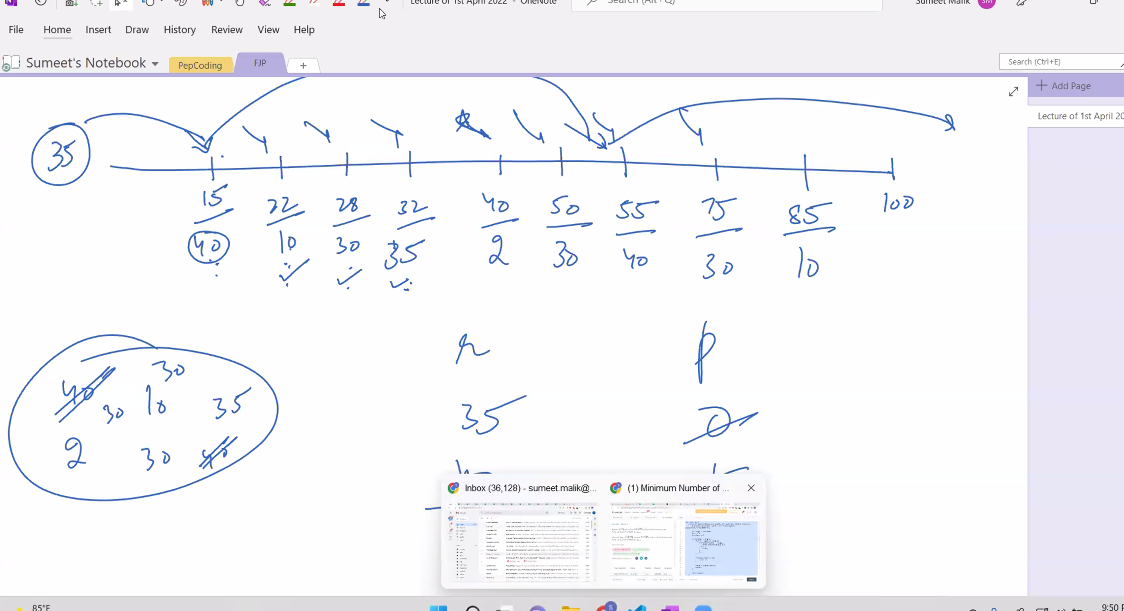 Lecture of 1st April 2022 - OneNote
Search (Alt+Q)
Sumeet Malik
SM
File Home Insert Draw History Review View Help
Sumeet's Notebook PepCoding FJP +
Search (Ctrl+E)
Add Page
Lecture of 1st April 20
35
15 22 28 32 40 50 55 75 85 100
40 10 30 35 2 30 40 30 10
40 30 10 30 35
2 30 40
r p
35 0
Inbox (36,128) - sumeet.malik@...
(1) Minimum Number of ...
85°F
9:50